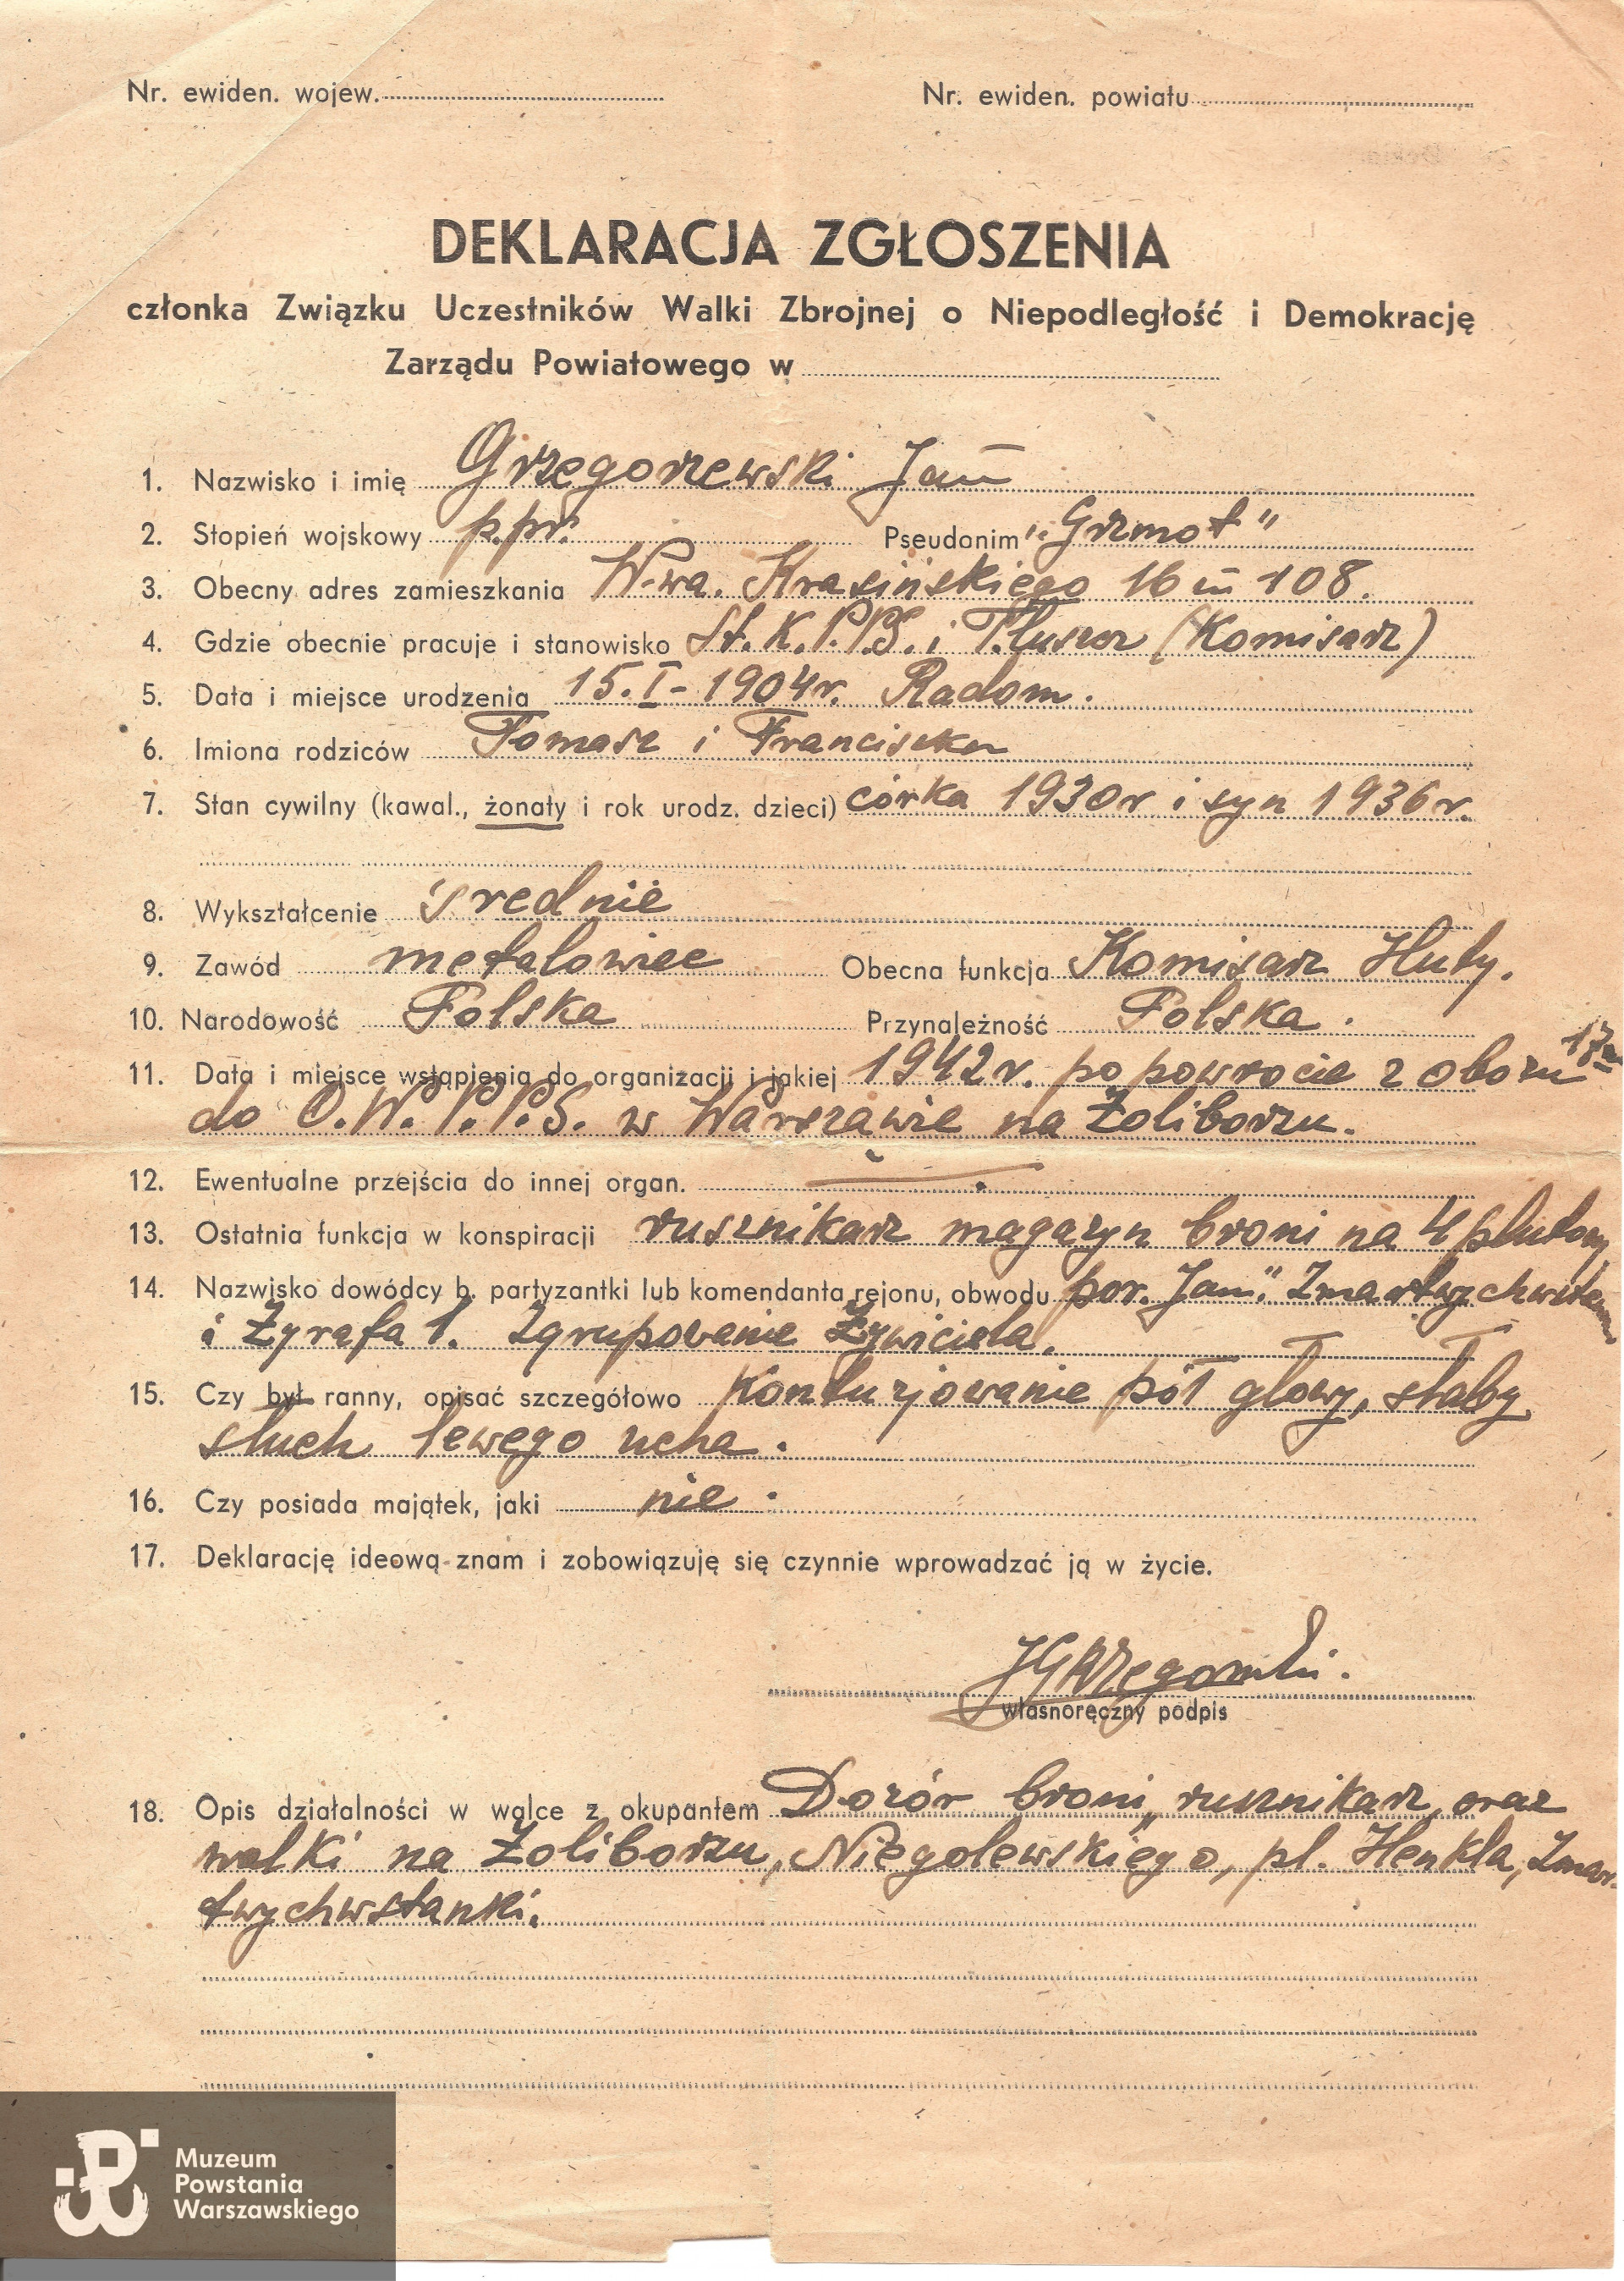 Nr. ewiden. wojew. Nr. ewiden. powiatu
DEKLARACJA ZGŁOSZENIA
członka Związku Uczestników Walki Zbrojnej o Niepodległość i Demokrację
Zarządu Powiatowego w
1. Nazwisko i imię Grzegorzewski Jan
2. Stopień wojskowy p.pr. Pseudonim „Grzmot”
3. Obecny adres zamieszkania W-wa. Krasińskiego 16 m 108.
4. Gdzie obecnie pracuje i stanowisko St. K. P.P.S. i Tłuszcz (Komisarz)
5. Data i miejsce urodzenia 15.I-1904r. Radom.
6. Imiona rodziców Tomasz i Franciszka
7. Stan cywilny (kawal., żonaty i rok urodz. dzieci) córka 1930r i syn 1936r.
8. Wykształcenie średnie
9. Zawód metalowiec Obecna funkcja Komisarz Huty.
10. Narodowość Polska Przynależność Polska.
11. Data i miejsce wstąpienia do organizacji i jakiej 1942r. po powrocie z obozu
do O.W.P.P.S. w Warszawie na Żoliborzu.
12. Ewentualne przejścia do innej organ. —
13. Ostatnia funkcja w konspiracji rusznikarz magazyn broni na 4 plutony
14. Nazwisko dowódcy b. partyzantki lub komendanta rejonu, obwodu por. Jan.
i Żyrafa 1. Zgrupowanie Żywiciela.
15. Czy był ranny, opisać szczegółowo Kontuzjowanie pół głowy, słaby
słuch lewego ucha.
16. Czy posiada majątek, jaki nie.
17. Deklarację ideową znam i zobowiązuję się czynnie wprowadzać ją w życie.
JGrzegorzewski.
własnoręczny podpis
18. Opis działalności w walce z okupantem Dozór broni, rusznikarz, oraz
walki na Żoliborzu, Niegolewskiego, pl. Henkla, Zmar-
twychwstanki.
Muzeum
Powstania
Warszawskiego